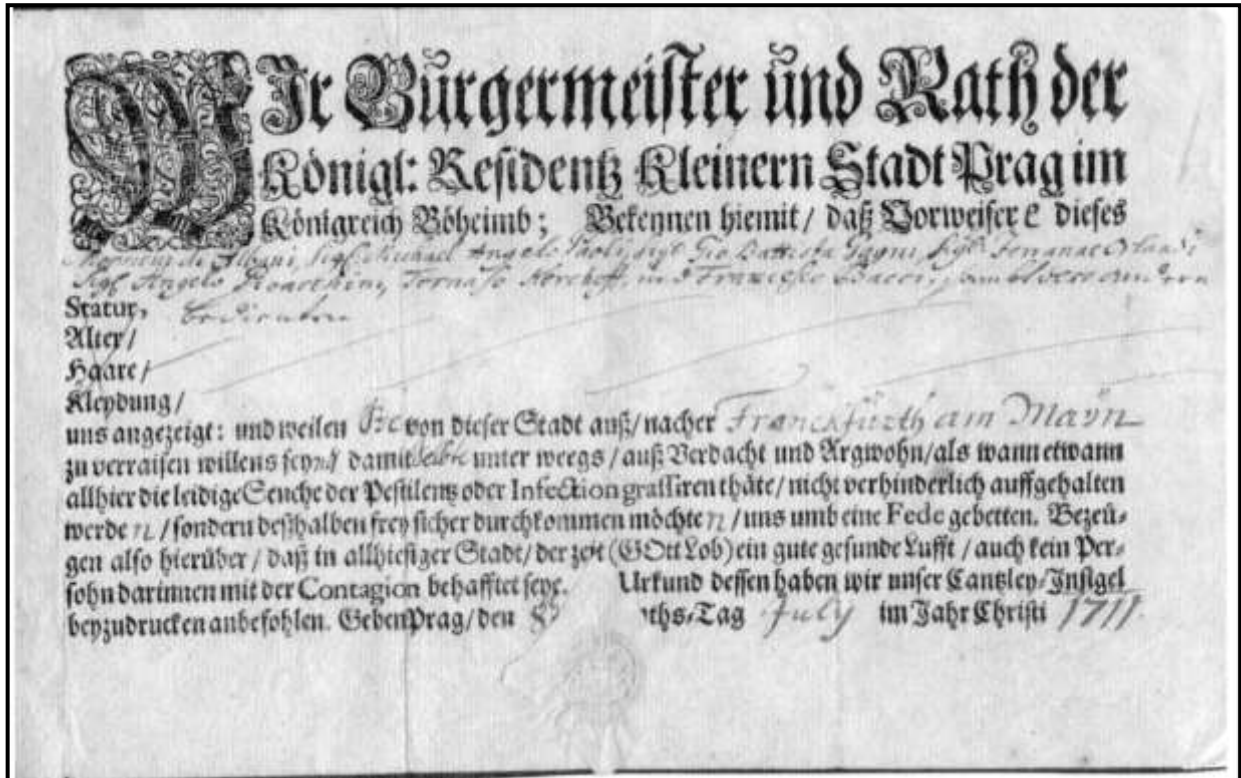 WIr Bürgermeister und Rath der
Königl: Residentz Kleinern Stadt Prag im
Königreich Böheimb; Bekennen hiemit / daß Vorweiser e dieses
de Albani, Sig: Michael Angelo Paoli, Sig: Gio Battista Sig: Orlandi
Sig: Angelo Tomaso und Francesco Bacci, andern
Statur, bedienten
Alter /
Haare /
Kleydung /
uns angezeigt: und weilen Sie von dieser Stadt auß / nacher Franckfürth am Maÿn
zu verraisen willens seynd damit selbe unter weegs / auß Verdacht und Argwohn / als wann etwann
allhier die leidige Seuche der Pestilentz oder Infection grassiren thäte / nicht verhinderlich auffgehalten
werde n / sondern deßhalben frey sicher durchkommen möchte n / uns umb eine Fede gebetten. Bezeü-
gen also hierüber / daß in allhiesiger Stadt / der zeit (GOtt Lob) ein gute gesunde Lufft / auch kein Per-
sohn darinnen mit der Contagion behafftet seye. Urkund dessen haben wir unser Cantzley-Insigel
beyzudrucken anbefohlen. Geben Prag / den 8 ths-Tag July im Jahr Christi 1711.